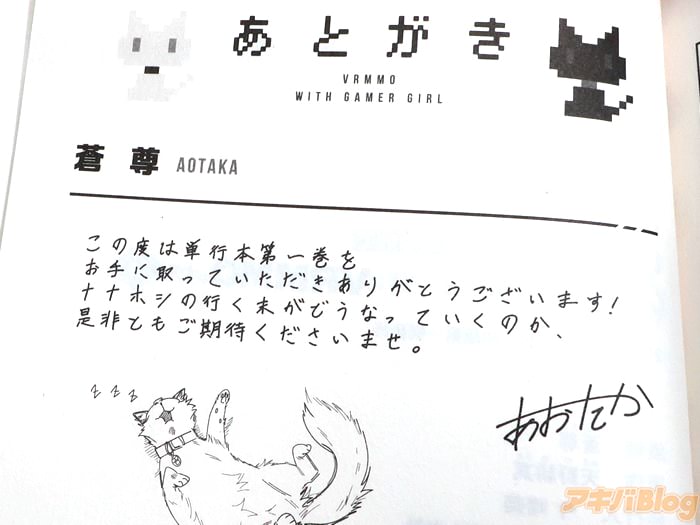 あとがき
VRMMO
WITH GAMER GIRL
蒼尊 AOTAKA
この度は単行本第一巻を
お手に取っていただきありがとうございます!
ナナホシの行く末がどうなっていくのか、
是非ともご期待くださいませ。
z z z
あおたか
アキバBlog